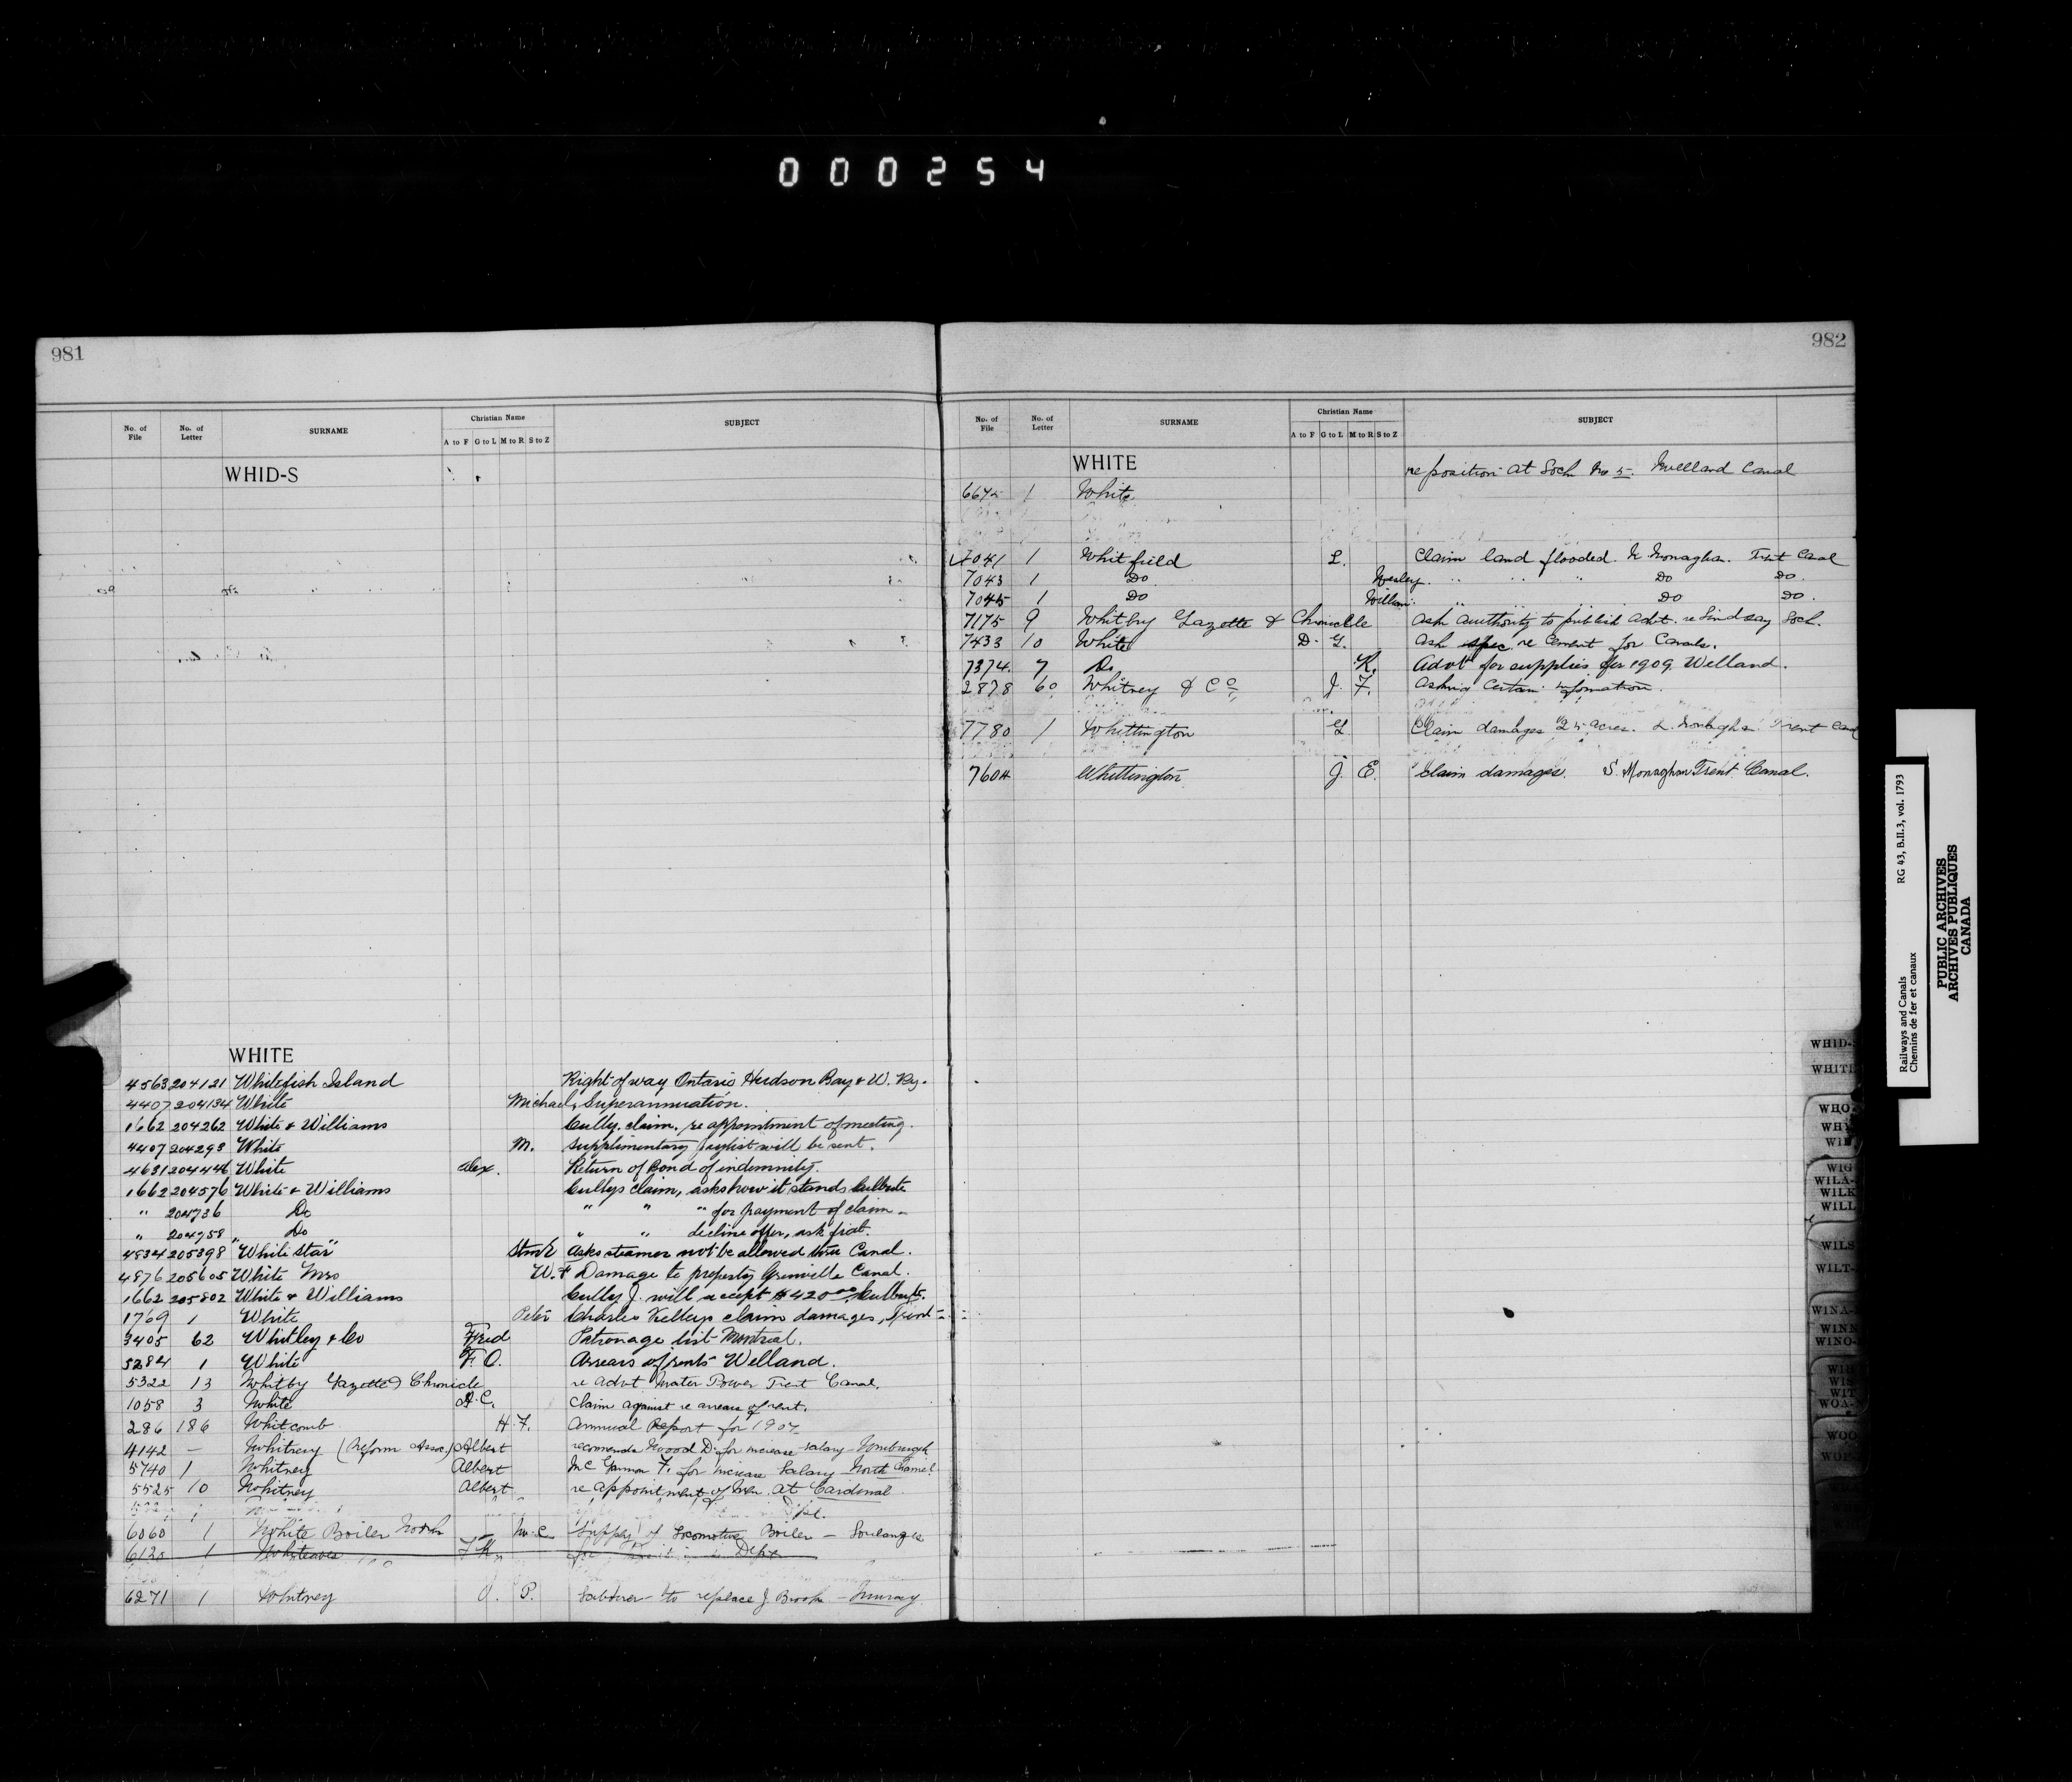 000254
981
No. of File No. of Letter SURNAME Christian Name A to F G to L M to R S to Z SUBJECT
WHID-S
WHITE
4563 204121 Whitefish Island Right of way Ontario Hudson Bay & W. Ry.
4407 204134 White Michael Superannuation.
1662 204262 White & Williams Cully. claim, re appointment of meeting.
4407 204293 White M. Supplimentary paylist will be sent.
4631 204446 White Alex. Return of Bond of indemnity.
1662 204576 White & Williams Cullys claim, asks how it stands Culbute
" 204736 Do " " " for payment of claim -
" 204958 " Do " " decline offer, ask fiat.
4834 205398 "White Star" Stmr Asks steamer not be allowed thru Canal.
4876 205605 White Mrs W. F Damage to property Grenville Canal.
1662 205802 White & Williams Cully J. will accept $420.00 Culbute.
1769 1 White Peter Charles Kelleys claim damages, Trent
3405 62 Whitley & Co Fred Patronage list Montreal.
5284 1 White F. O. Arrears of rents Welland.
5322 13 Whitby Gazette & Chronicle re advt. Water Power Trent Canal.
1058 3 White A. C. Claim against re arrears of rent.
286 186 Whitcomb H. F. Annual Report for 1907
4142 — Whitney (Reform Assoc.) Albert recomends Wood D. for increase salary
5740 1 Whitney Albert for increase Salary North Channel
5525 10 Whitney Albert re appointment of men at Cardinal
6060 1 White Boiler Work W. C. Supply of Locomotive Boiler — Soulanges
6125 1 Whiteaves Dept
6271 1 Whitney O. P. Labourer to replace J Brooks — Murray
982
No. of File No. of Letter SURNAME Christian Name A to F G to L M to R S to Z SUBJECT
WHITE re position at Lock No 5. Welland Canal
6672 1 White
7041 1 Whitfield L. Claim land flooded. N Monaghan. Trent Canal
7043 1 Do Wesley. " " " Do Do.
7045 1 Do William. " " " Do Do.
7175 9 Whitby Gazette & Chronicle Ask authority to publish advt. re Lindsay Lock.
7433 10 White D. G. Ask spec. re Cement for Canals.
7374. 7 Do K. Advt for supplies for 1909 Welland.
2878 60 Whitney & Co J. F. Asking certain information.
7780 1 Whittington G Claim damages 25 acres. Monaghan Trent Canal
7604 Whittington J. E. Claim damages. S. Monaghan Trent Canal.
WHID-S
WHITE
WHO
WHY
WI
WIG
WILA-
WILK
WILL
WILS
WILT-
WINA-
WINN
WINO-
WIR
WIS
WIT
WOA-
WOO
WOP-
Railways and Canals RG 43, B.II.3, vol. 1793
Chemins de fer et canaux
PUBLIC ARCHIVES
ARCHIVES PUBLIQUES
CANADA